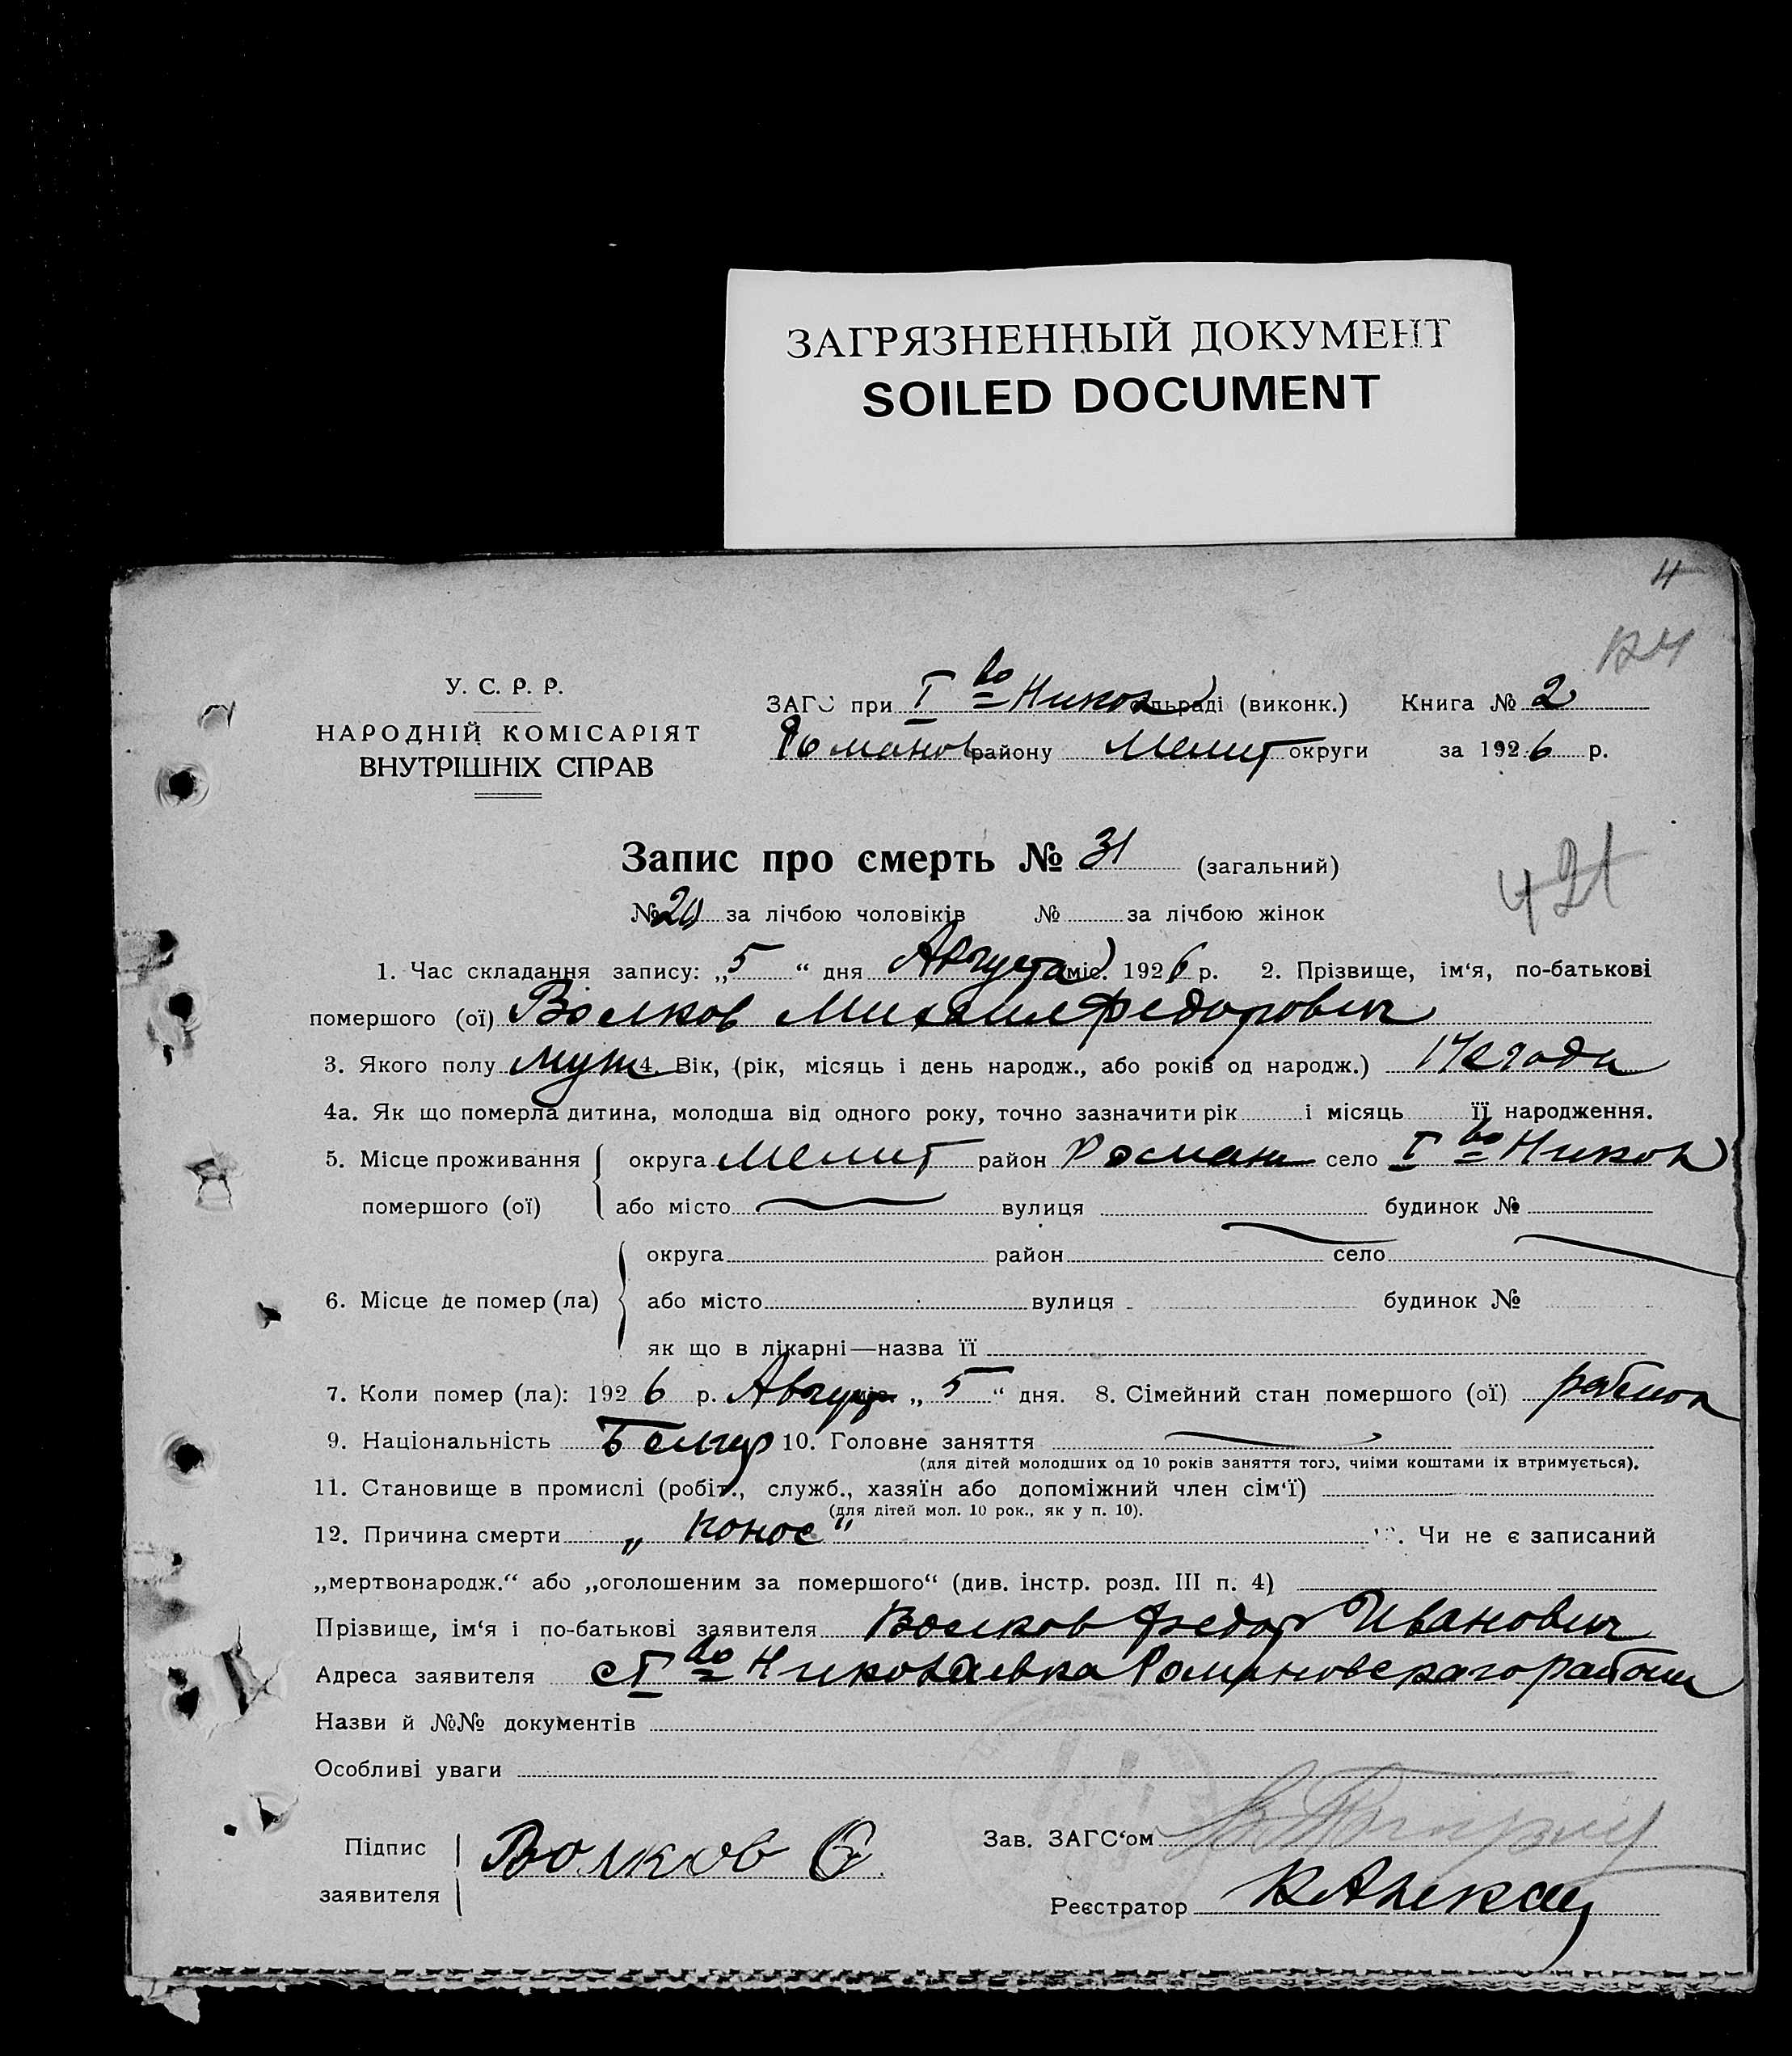 ЗАГРЯЗНЕННЫЙ ДОКУМЕНТ
SOILED DOCUMENT
4
У. С. Р. Р.
НАРОДНІЙ КОМІСАРІЯТ
ВНУТРІШНІХ СПРАВ
ЗАГС при I во Никол сільраді (виконк.) Книга № 2
Романов району Мелит округи за 1926 р.
Запис про смерть № 31 (загальний)
421
№ 20 за лічбою чоловіків № за лічбою жінок
1. Час складання запису: „5“ дня Августа міс. 1926 р. 2. Прізвище, ім‘я, по-батькові
помершого (ої) Волков Михаил Федорович
3. Якого полу муж 4. Вік, (рік, місяць і день народж., або років од народж.) года
4а. Як що померла дитина, молодша від одного року, точно зазначити рік і місяць її народження.
5. Місце проживання помершого (ої) округа Мелит район Роман село I во Никол
або місто вулиця будинок №
6. Місце де помер (ла) округа район село
або місто вулиця будинок №
як що в лікарні—назва її
7. Коли помер (ла): 1926 р. Август „5“ дня. 8. Сімейний стан помершого (ої)
9. Національність Болгар 10. Головне заняття
(для дітей молодших од 10 років заняття того, чиїми коштами їх втримується).
11. Становище в промислі (робіт., служб., хазяїн або допоміжний член сім‘ї)
(для дітей мол. 10 рок., як у п. 10).
12. Причина смерти „понос“ Чи не є записаний
„мертвонародж.“ або „оголошеним за помершого“ (див. інстр. розд. III п. 4)
Прізвище, ім‘я і по-батькові заявителя Волков Федор Иванович
Адреса заявителя с I во Николаевка Романовскаго района
Назви й №№ документів
Особливі уваги
Підпис заявителя Волков Ѳ
Зав. ЗАГС‘ом
Реєстратор